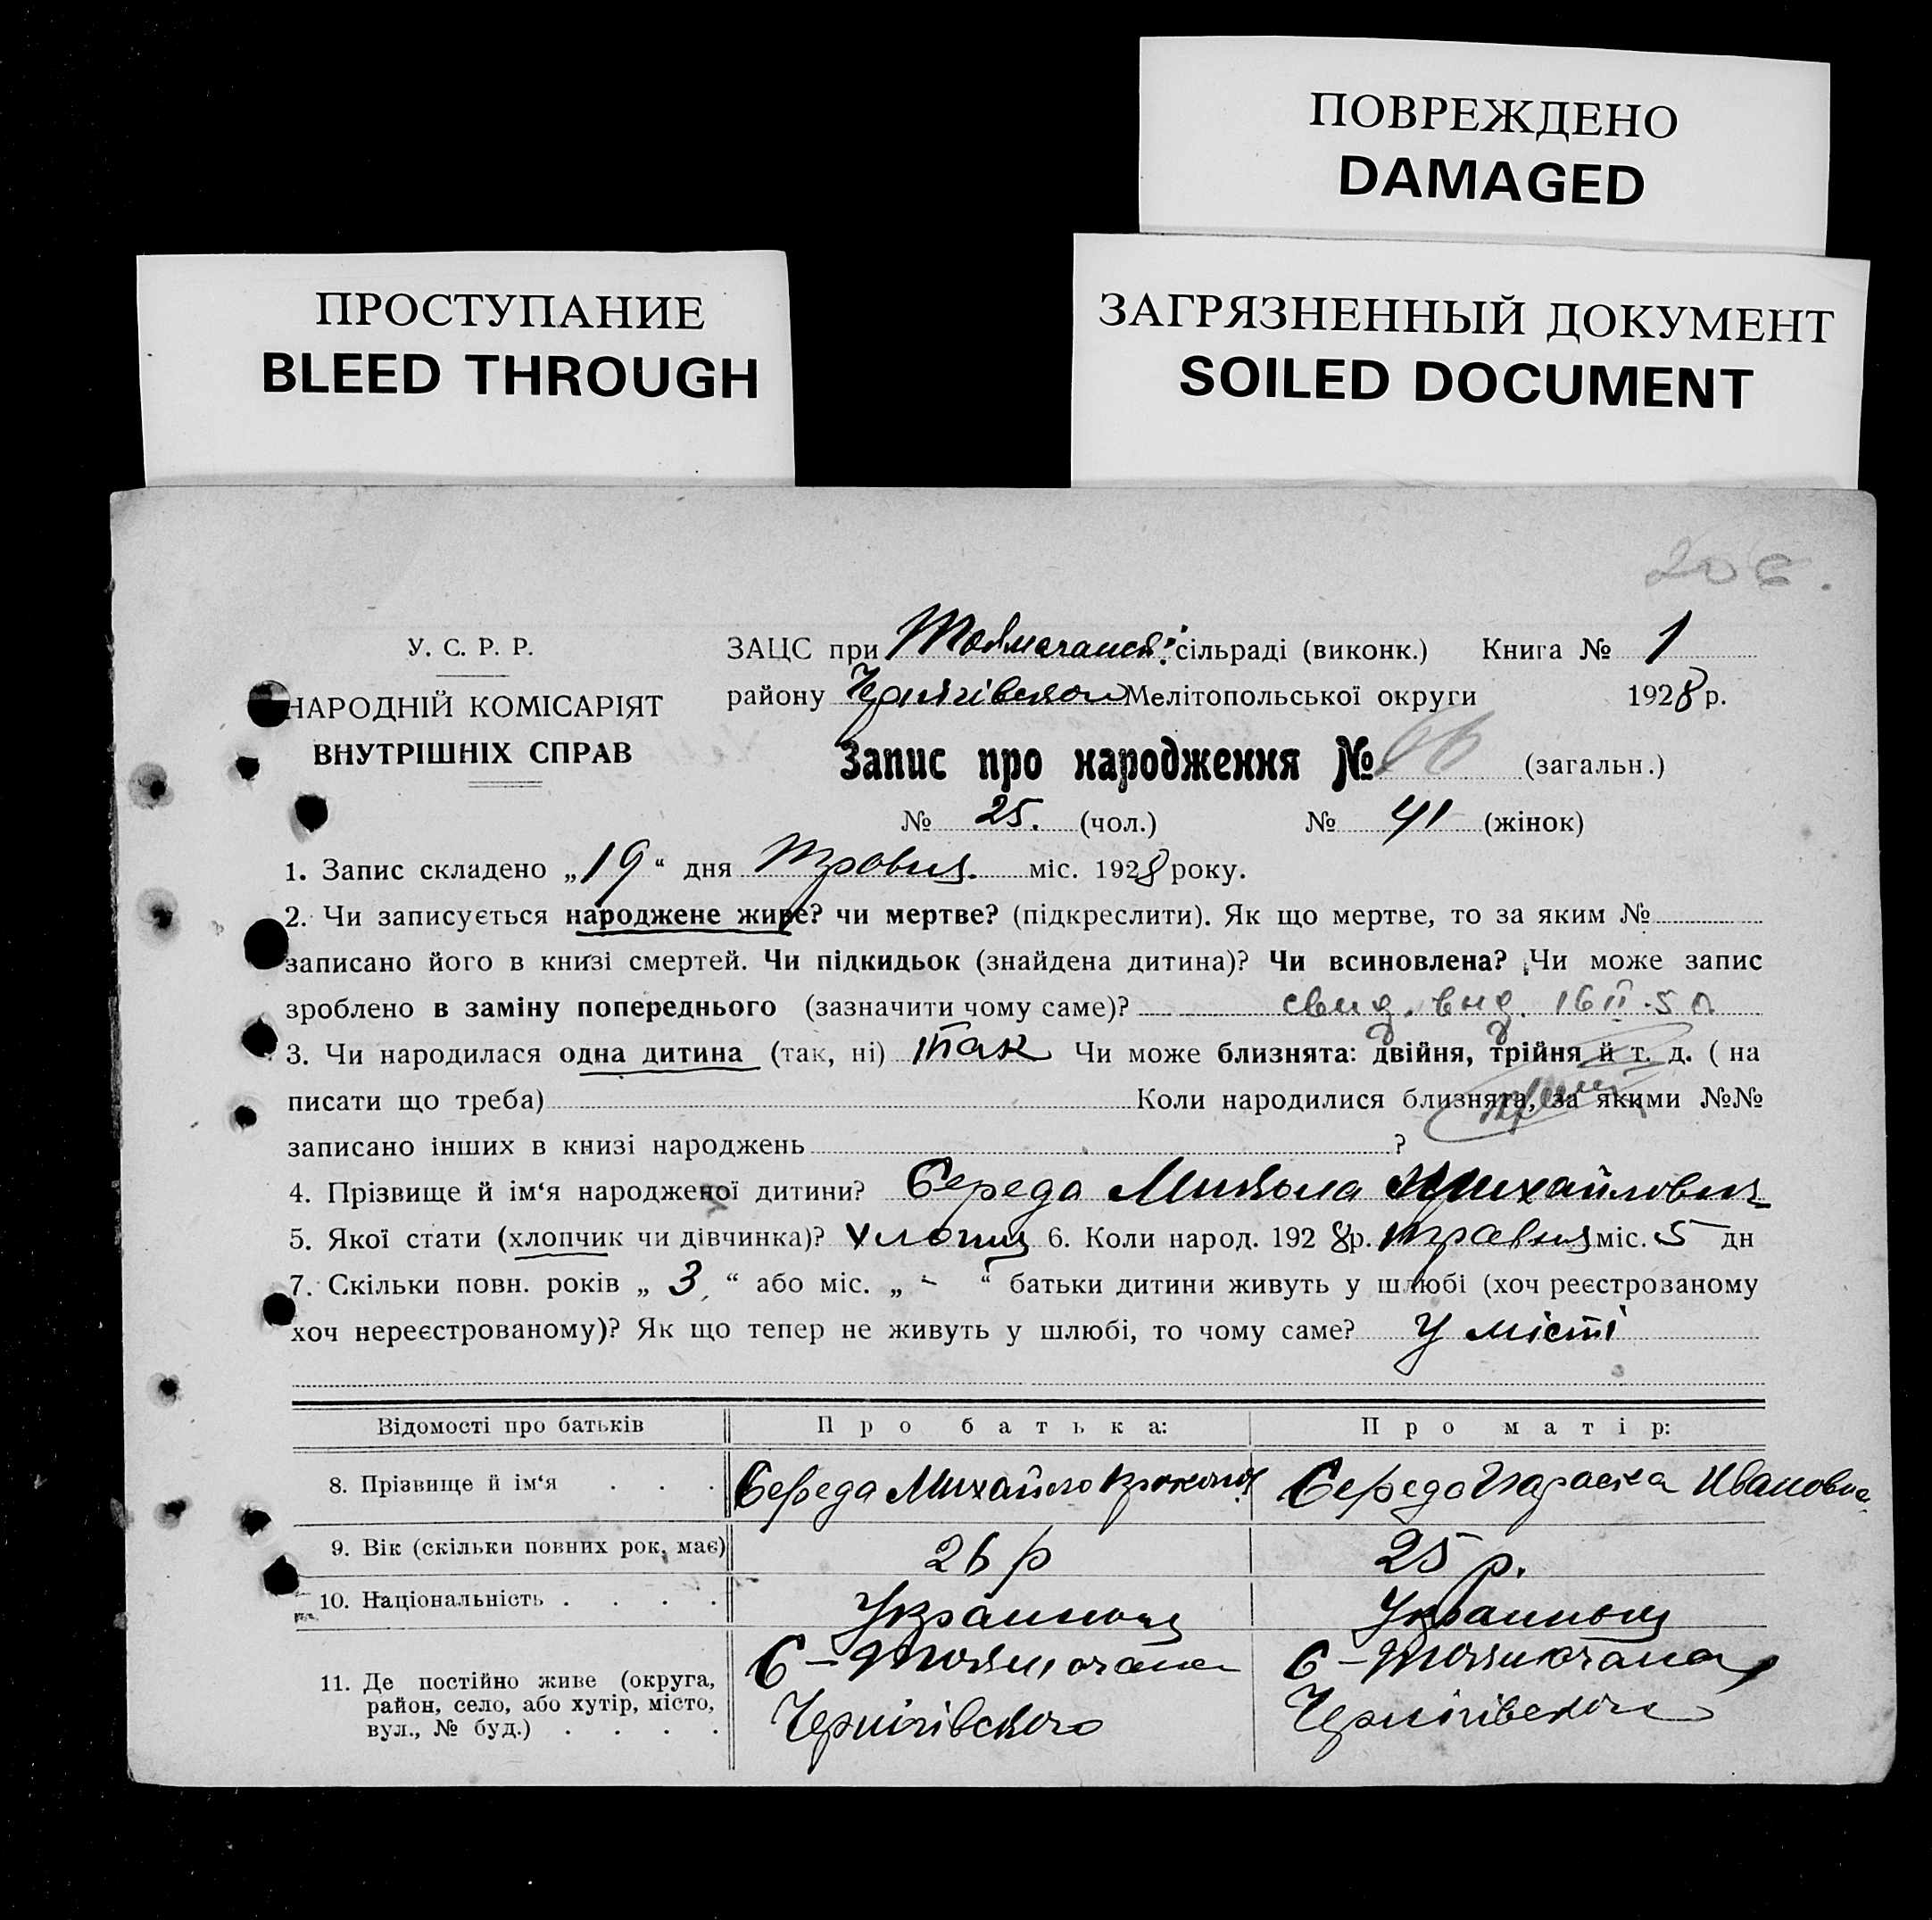 ПОВРЕЖДЕНО
DAMAGED
ПРОСТУПАНИЕ
BLEED THROUGH
ЗАГРЯЗНЕННЫЙ ДОКУМЕНТ
SOILED DOCUMENT
У. С. Р. Р.
НАРОДНІЙ КОМІСАРІЯТ
ВНУТРІШНІХ СПРАВ
ЗАЦС при сільраді (виконк.) Книга № 1
району Чернігівского Мелітопольської округи 1928 р.
Запис про народження № 66 (загальн.)
№ 25. (чол.) № 41 (жінок)
1. Запис складено „19“ дня травня міс. 1928 року.
2. Чи записується народжене живе? чи мертве? (підкреслити). Як що мертве, то за яким №
записано його в книзі смертей. Чи підкидьок (знайдена дитина)? Чи всиновлена? Чи може запис
зроблено в заміну попереднього (зазначити чому саме)? свид. выд. 16 II 50
3. Чи народилася одна дитина (так, ні) так Чи може близнята: двійня, трійня й т. д. ( на
писати що треба) Коли народилися близнята, за якими №№
записано інших в книзі народжень ?
4. Прізвище й ім‘я народженої дитини? Середа Микола Михайлович
5. Якої стати (хлопчик чи дівчинка)? хлопец 6. Коли народ. 1928 р. травня міс. 5 дн
7. Скільки повн. років „ 3 “ або міс. „ - “ батьки дитини живуть у шлюбі (хоч реєстрованому
хоч нереєстрованому)? Як що тепер не живуть у шлюбі, то чому саме? У місті
Відомості про батьків Про батька: Про матір:
8. Прізвище й ім‘я . . . Середа Михайло Середа Параска Ивановна
9. Вік (скільки повних рок, має) 26 р 25 р.
10. Національність . . . . Украинець Украинець
11. Де постійно живе (округа,
район, село, або хутір, місто,
вул., № буд.) . . . .
С-Токмачана
Чернігівского
С-Токмачана
Чернігівского